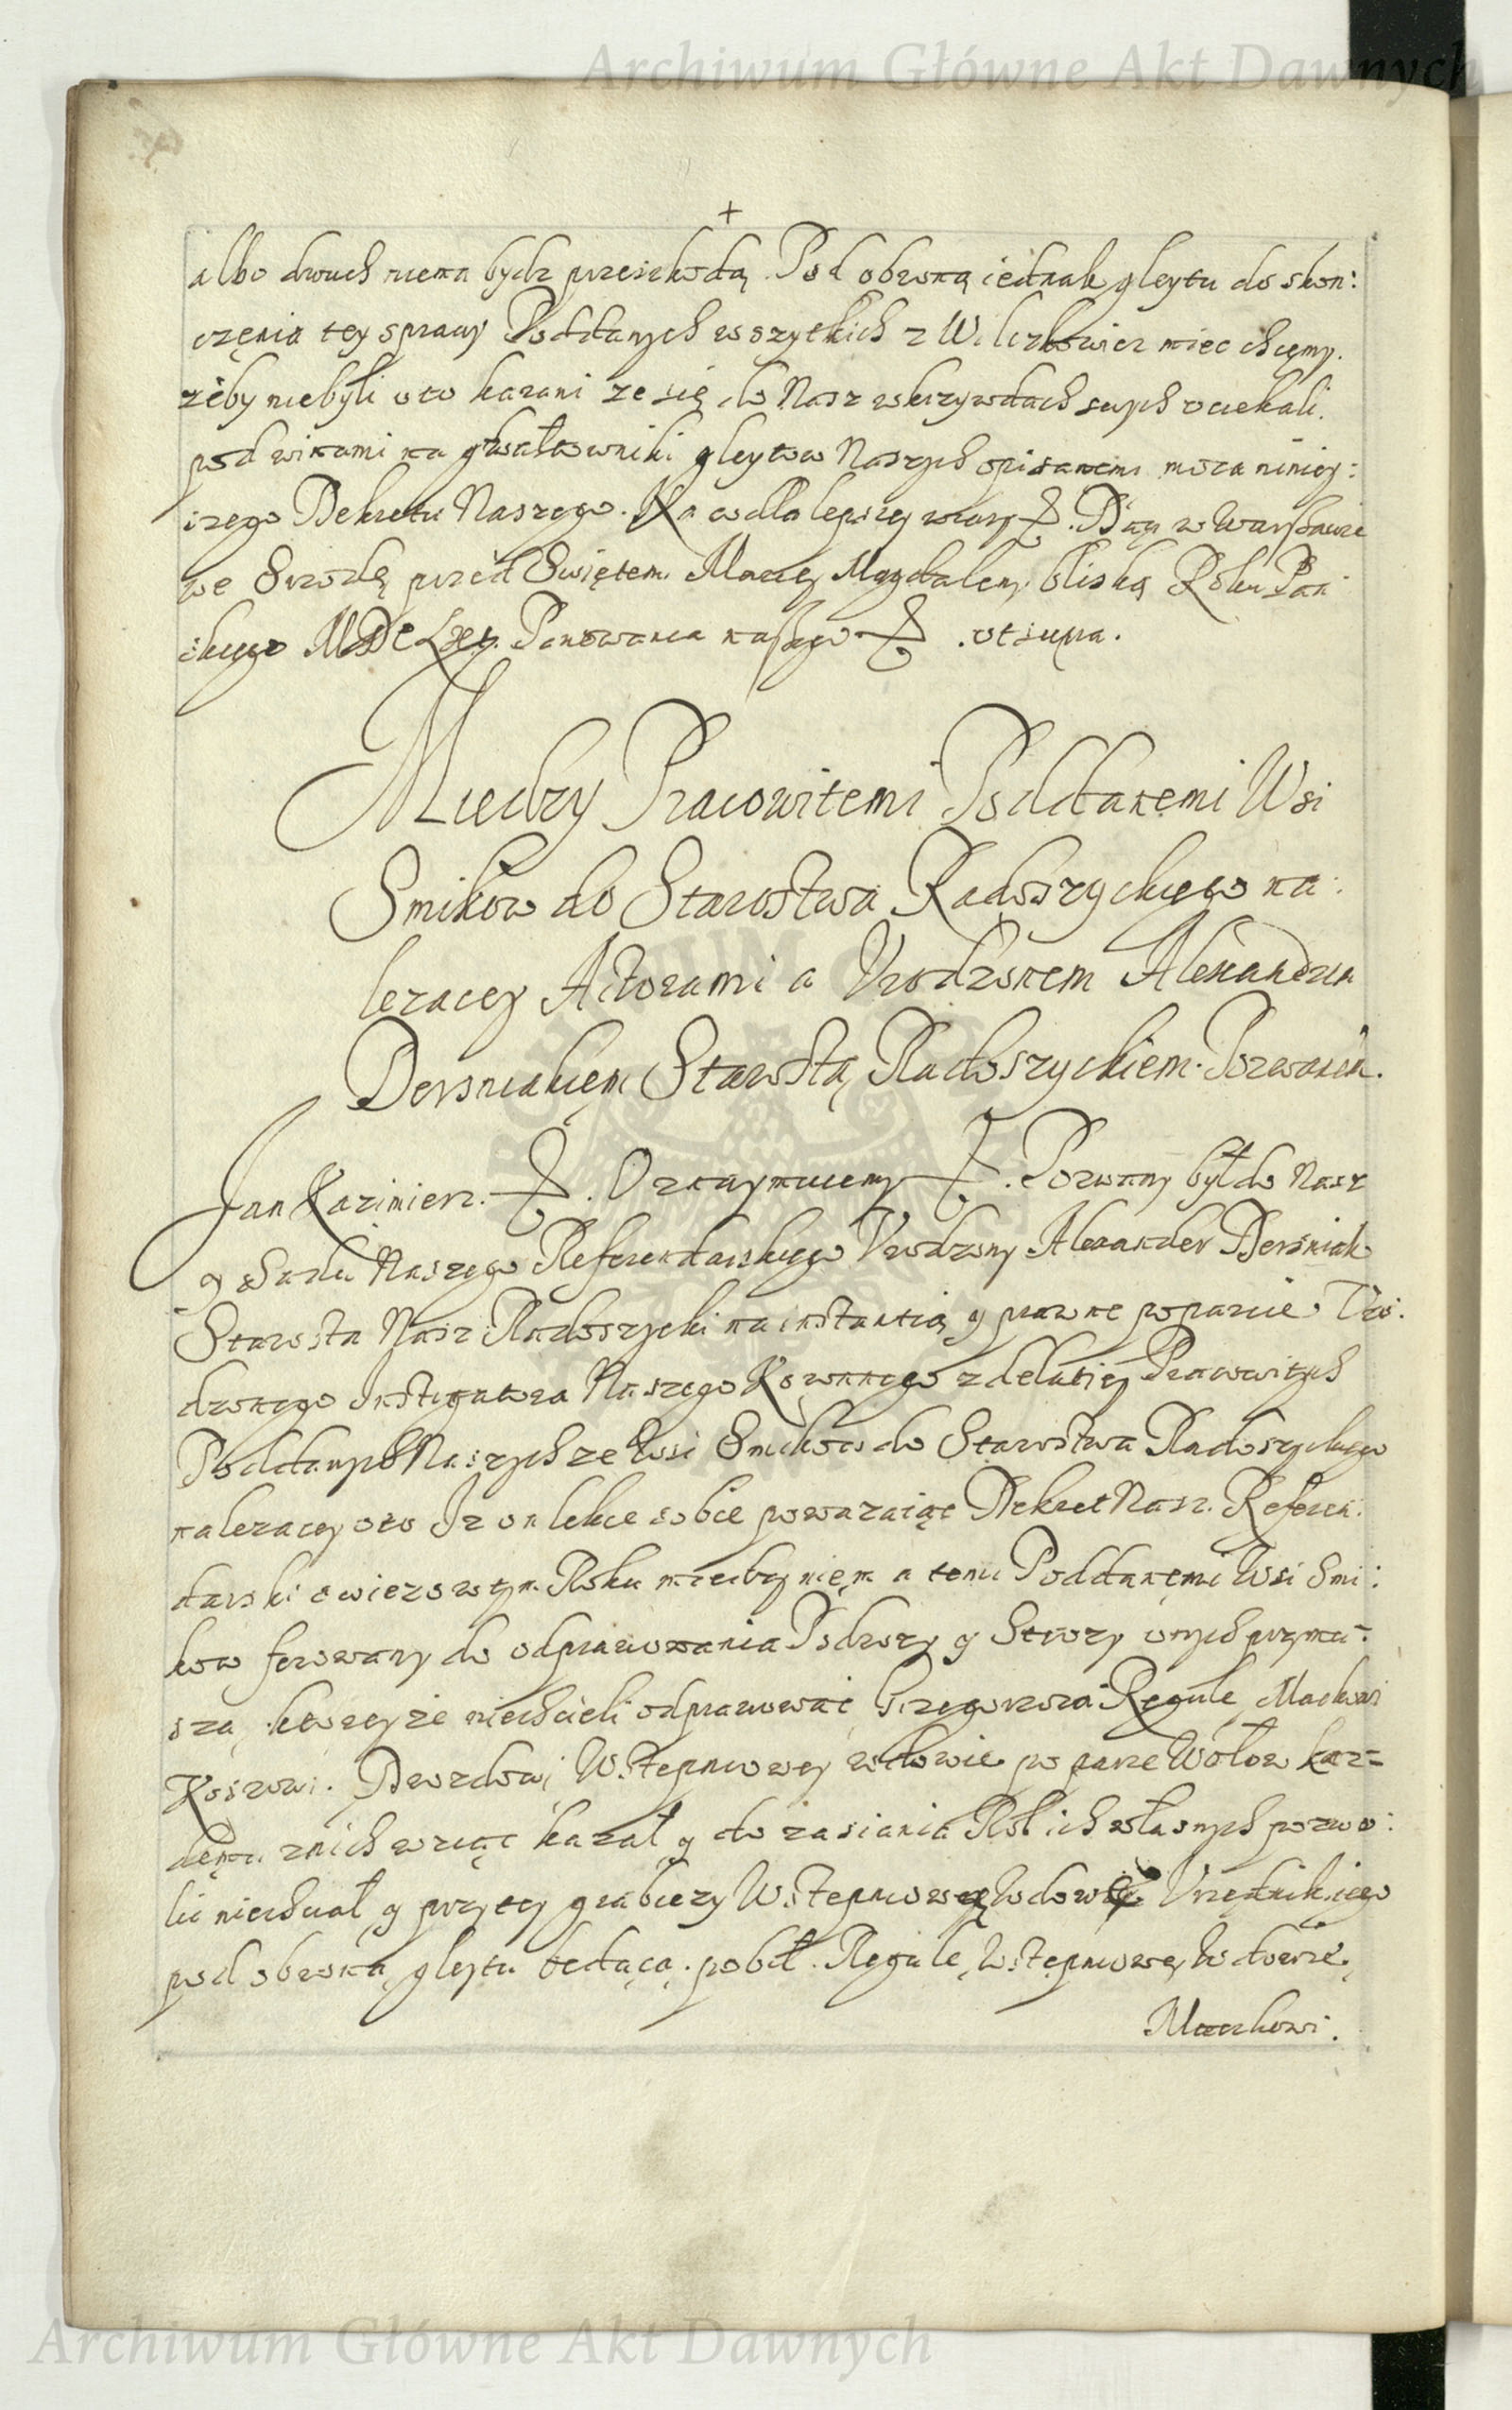 Archiwum Główne Akt Dawnych
+
albo dwuch niema bydz przeszkodą. Pod obroną iednak gleytu do skon:
częnia tey sprawy Poddanych wszytkich z Wilczkowicz miec chcęmy.
zeby niebyli oto karani ze się do Nasz wkrzywdach swych vciekali.
pod winami na gwałtowniki gleytow Naszych opisanemi moca niniey:
szego Dekretu Naszego. Na co dla lepszey wiary &. Dan w Warszawie
we Srzodę przed Swiętem Mariey Magdaleny bliską Roku Pan
skiego Panowania naszego & . vt supra.
Miedzy Pracowitemi Poddanemi Wsi
Smikow do Starostwa Radoszyckiego na:
lezacey Aktorami a Vrodzonem Alexandrem
Dersniakięm Starostą Radoszyckiem Pozwanem.
Jan Kazimierz. &. Oznaymuiemy &. Pozwany był do Nasz
y Sadu Naszego Referendarskiego Vrodzony Alexander Derśniak
Starosta Nasz Radoszycki na instantią y prawne poparcie Vro:
dzonego Instigatora Naszego Koronnego z delatiey Pracowitych
Poddanych Naszych ze Wsi Smikow do Starostwa Radoszyckiego
nalezacey oto Iz on lekce sobie powazaiąc Dekret Nasz. Referen:
darski swiezo w tym Roku miedzy niem a temi Poddanemi Wsi Smi:
kow ferowany do odprawowania Podrozy y Strozy onych przymu:
sza, ktorey ze niechcieli odprawować Grzegorzowi Regule, Mackowi
Koszowi. Dwordowi Wstępniowey wdowie po parze Wołow kaz=
dęmu znich wziąc kazał y do zasiania Rol ich własnych pozwo:
lic niechciał y przy tey grabiezy Wstępniowę Wdowę Vrzędnik iego
pod obroną gleytu będącą. pobił. Regule, Wstępniowey Wdowie,
Mackowi.
Archiwum Główne Akt Dawnych